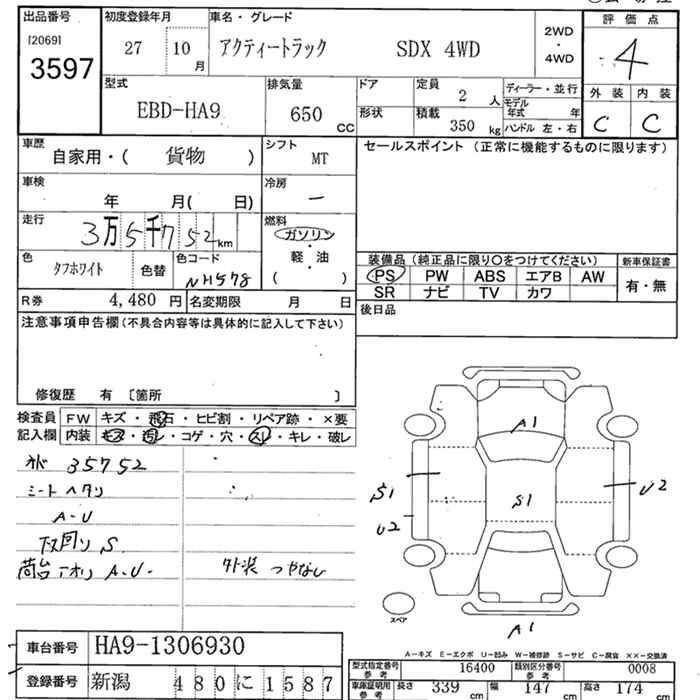 出品番号 初度登録年月 車名・グレード 評価点
[2069] 27 10月 アクティートラック SDX 4WD 2WD・4WD 4
3597
型式 排気量 ドア 定員 ディーラー・並行 外装 内装
EBD-HA9 650 CC 2 人 モデル年式 年 C C
形状 積載 350 kg ハンドル 左・右
車歴 自家用・( 貨物 ) シフト MT セールスポイント (正常に機能するものに限ります)
車検 年 月( 日) 冷房 ー
走行 3万5千752km 燃料 ガソリン・軽・油・( )
色 タフホワイト 色替 色コード NH578
装備品 (純正品に限り○をつけてください) 新車保証書
PS PW ABS エアB AW 有・無
SR ナビ TV カワ
R券 4,480 円 名変期限 月 日 後日品
注意事項申告欄(不具合内容等は具体的に記入して下さい)
修復歴 有 〔箇所 〕
検査員 FW キズ・飛石・ヒビ割・リペア跡・×要
記入欄 内装 キズ・汚レ・コゲ・穴・スレ・キレ・破レ
オド 35752
シートヘタリ
A-U
下回りS
荷台アオリ A-U- 外装つやなし
A1
S1 S1 U2
U2
スペア
A1
A-キズ E-エクボ U-凹み W-補修跡 S-サビ C-腐食 ××-交換済
車台番号 HA9-1306930
登録番号 新潟 480に1587
型式指定番号 参考 16400 類別区分番号 参考 0008
車庫証明用 参考 長さ 339 cm 幅 147 cm 高さ 174 cm